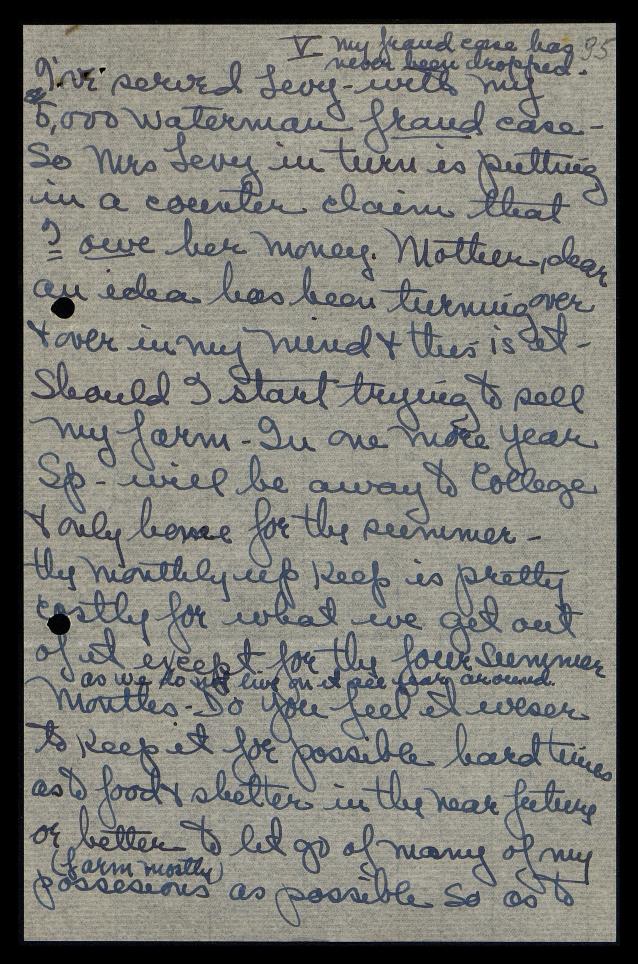 V my fraud case has 95
never been dropped.
I've served Levy - with my
5,000 Waterman fraud case -
So Mrs Levy in turn is putting
in a counter claim that
I owe her money. Mother, dear
an idea has been turning over
& over in my mind & this is it -
Should I start trying to sell
my farm - In one more year
Sp - will be away to College
& only home for the summer -
the monthly up keep is pretty
costly for what we get out
of it except for the four summer
as we do not live on it all year around.
Months - Do you feel it wiser
to keep it for possible hard times
as to food & shelter in the near future
or better to let go of many of my
(farm mostly)
possesions as possible so as to